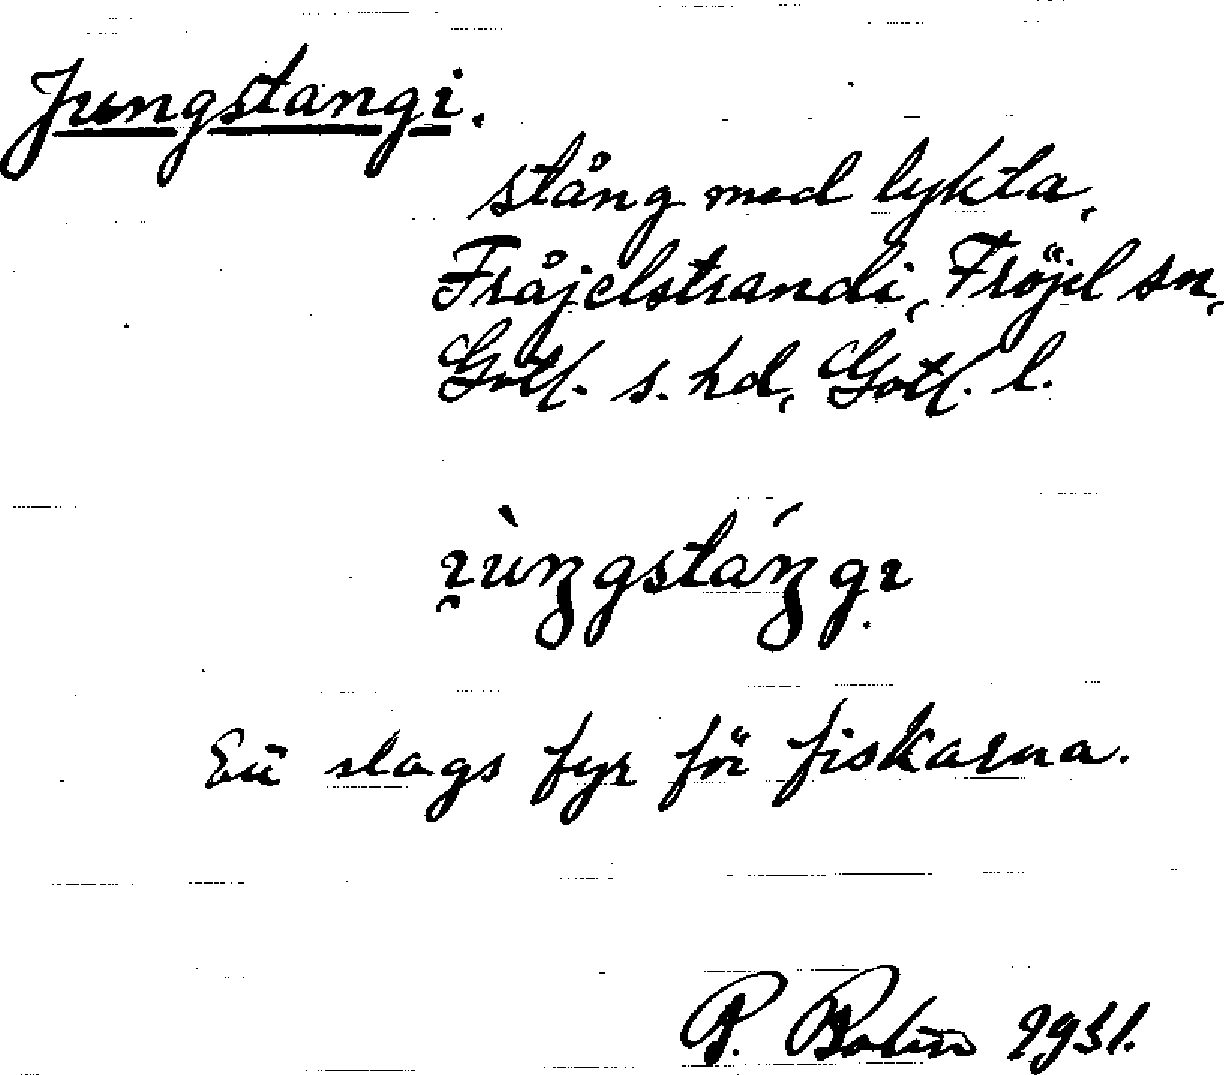 Jungstangi.
stång med lykta,
Fråjelstrandi, Fröjel sn,
Gotl. s. hd, Gotl. l.
En slags fyr för fiskarna.
P. Bolin 1931.